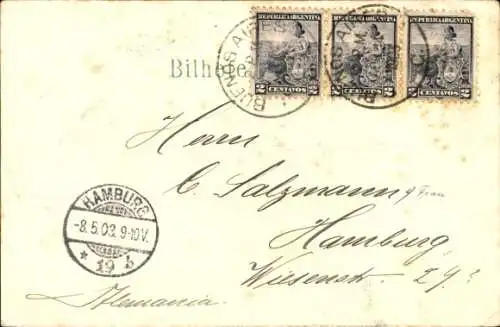 REPUBLICA ARGENTINA REPUBLICA ARGENTINA REPUBLICA ARGENTINA
2 CENTAVOS 2 2 CENTAVOS 2 2 CENTAVOS 2
BUENOS AI
BUENOS A
Bilhete
Herrn
C. Salzmann & Frau
Hamburg
Wiesenstr. 29
Alemania.
HAMBURG
-8.5.03. 9-10V.
* 19